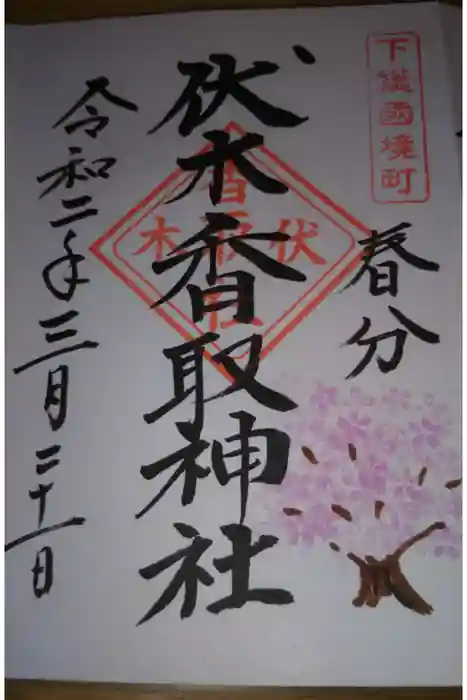 下總國境町
春分
伏木香取神社
伏木
令和二年三月二十一日